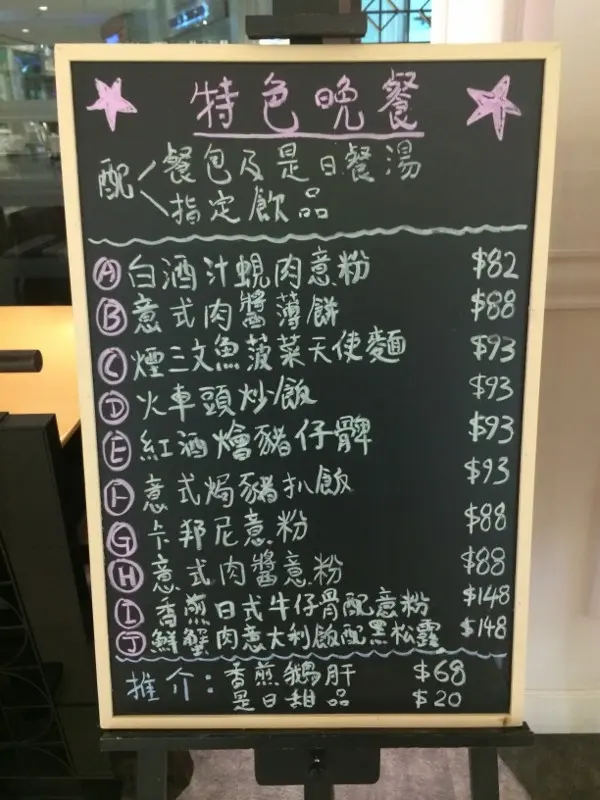 特色晚餐
配 餐包及是日餐湯
指定飲品
A 白酒汁蜆肉意粉 $82
B 意式肉醬薄餅 $88
C 煙三文魚菠菜天使麵 $93
D 火車頭炒飯 $93
E 紅酒燴豬仔髀 $93
F 意式焗豬扒飯 $93
G 卡邦尼意粉 $88
H 意式肉醬意粉 $88
I 香煎日式牛仔骨配意粉 $148
J 鮮蟹肉意大利飯配黑松露 $148
推介：香煎鵝肝 $68
是日甜品 $20